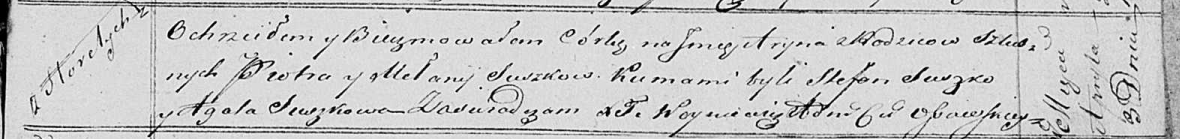 z Horelych
Ochrzciłem y Bierzmowałem Córkę na Imię Aryna z Rodzicow Szlub-
nych Piotra y Melanij Suszkow. Kumami byli Stefan Suszko
y Agata Suszkowa Zaświadczam X. T. Woyniewicz Adm. Cer.
Mca
Dnia